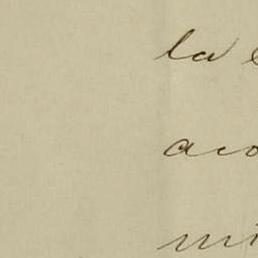 la
aco
mi